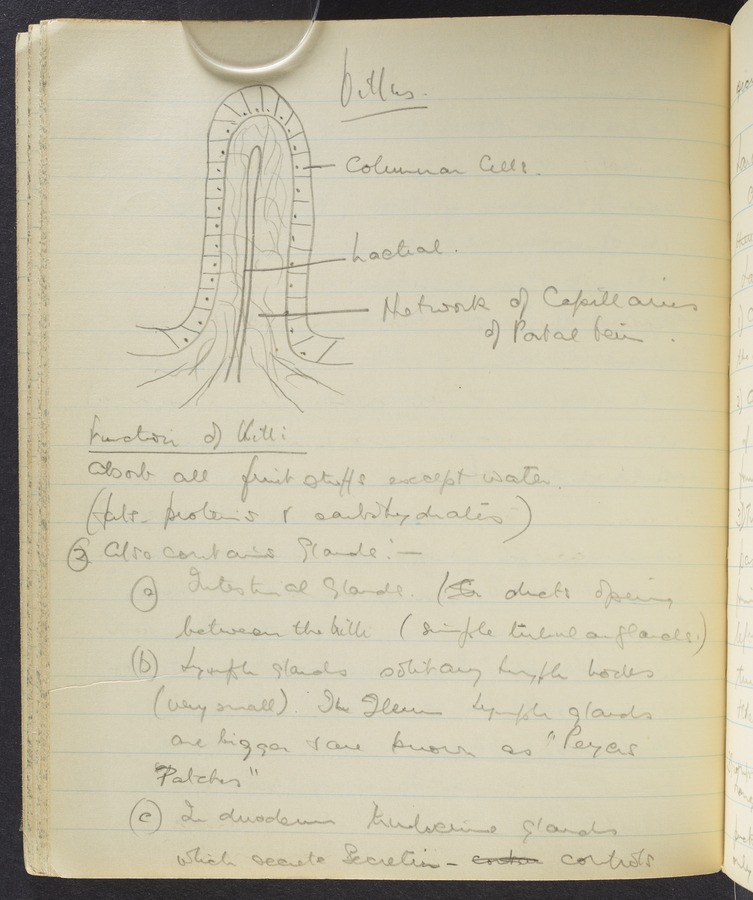 Villus.
Columnar Cells.
Lacteal.
Network of Capillaries
of Portal Vein.
Function of Villi:
Absorb all fruit stuffs except water.
(fats - proteins & carbohydrates)
② Also contains Glands:—
(a) Intestinal Glands. ( ducts opening
between the villi (simple tubular glands.)
(b) Lymph glands solitary lymph nodes
(very small). In Ileum lymph glands
are bigger & are known as "Peyers
Patches"
(c) In duodenum Endocrine glands
which secrete Secretin - controls